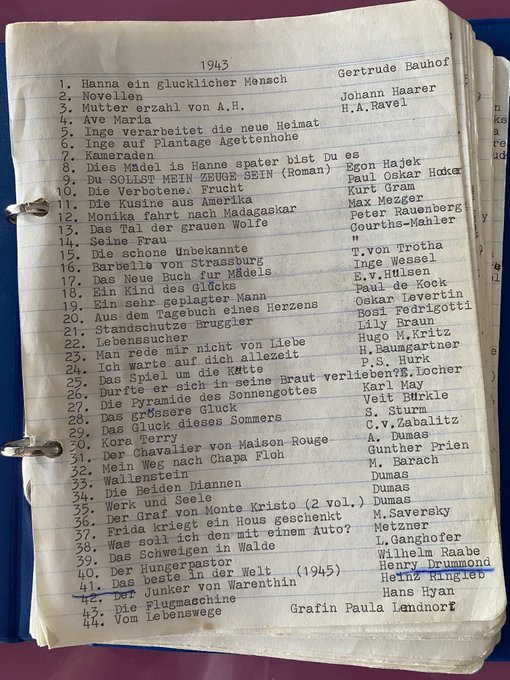 1943
1. Hanna ein glucklicher Mensch Gertrude Bauhof
2. Novellen
3. Mutter erzahl von A.H. Johann Haarer
4. Ave Maria H.A.Ravel
5. Inge verarbeitet die neue Heimat
6. Inge auf Plantage Agettenhohe
7. Kameraden
8. Dies Mädel is Hanne spater bist Du es
9. Du SOLLST MEIN ZEUGE SEIN (Roman) Egon Hajek
10. Die Verbotene Frucht Paul Oskar Hocker
11. Die Kusine aus Amerika Kurt Gram
12. Monika fahrt nach Madagaskar Max Mezger
13. Das Tal der grauen Wolfe Peter Rauenberg
14. Seine Frau Gourths-Mahler
15. Die schone Unbekannte "
16. Barbelle von Strassburg T.von Trotha
17. Das Neue Buch fur Mädels Inge Wessel
18. Ein Kind des Glücks E.v.Hülsen
19. Ein sehr geplagter Mann Paul de Kock
20. Aus dem Tagebuch eines Herzens Oskar Levertin
21. Standschutze Bruggler Bosi Fedrigotti
22. Lebenssucher Lily Braun
23. Man rede mir nicht von Liebe Hugo M.Kritz
24. Ich warte auf dich allezeit H.Baumgartner
25. Das Spiel um die Kätte P.S. Hurk
26. Durfte er sich in seine Braut verlieben? E.Locher
27. Die Pyramide des Sonnengottes Karl May
28. Das grössere Gluck Veit Bürkle
29. Das Gluck dieses Sommers S. Sturm
30. Kora Terry C.v.Zabalitz
31. Der Chavalier von Maison Rouge A. Dumas
32. Mein Weg nach Chapa Floh Gunther Prien
33. Wallenstein M. Barach
34. Die Beiden Diannen Dumas
35. Werk und Seele Dumas
36. Der Graf von Monte Kristo (2 vol.) Dumas
37. Frida kriegt ein Hous geschenkt M.Saversky
38. Was soll ich den mit einem Auto? Metzner
39. Das Schweigen in Walde L.Ganghofer
40. Der Hungerpastor Wilhelm Raabe
41. Das beste in der Welt (1945) Henry Drummond
42. Der Junker von Warenthin Heinz Ringleb
43. Die Flugmaschine Hans Hyan
44. Vom Lebenswege Grafin Paula Lendnorf